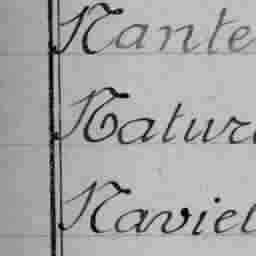 Nante
Natur
Naviel